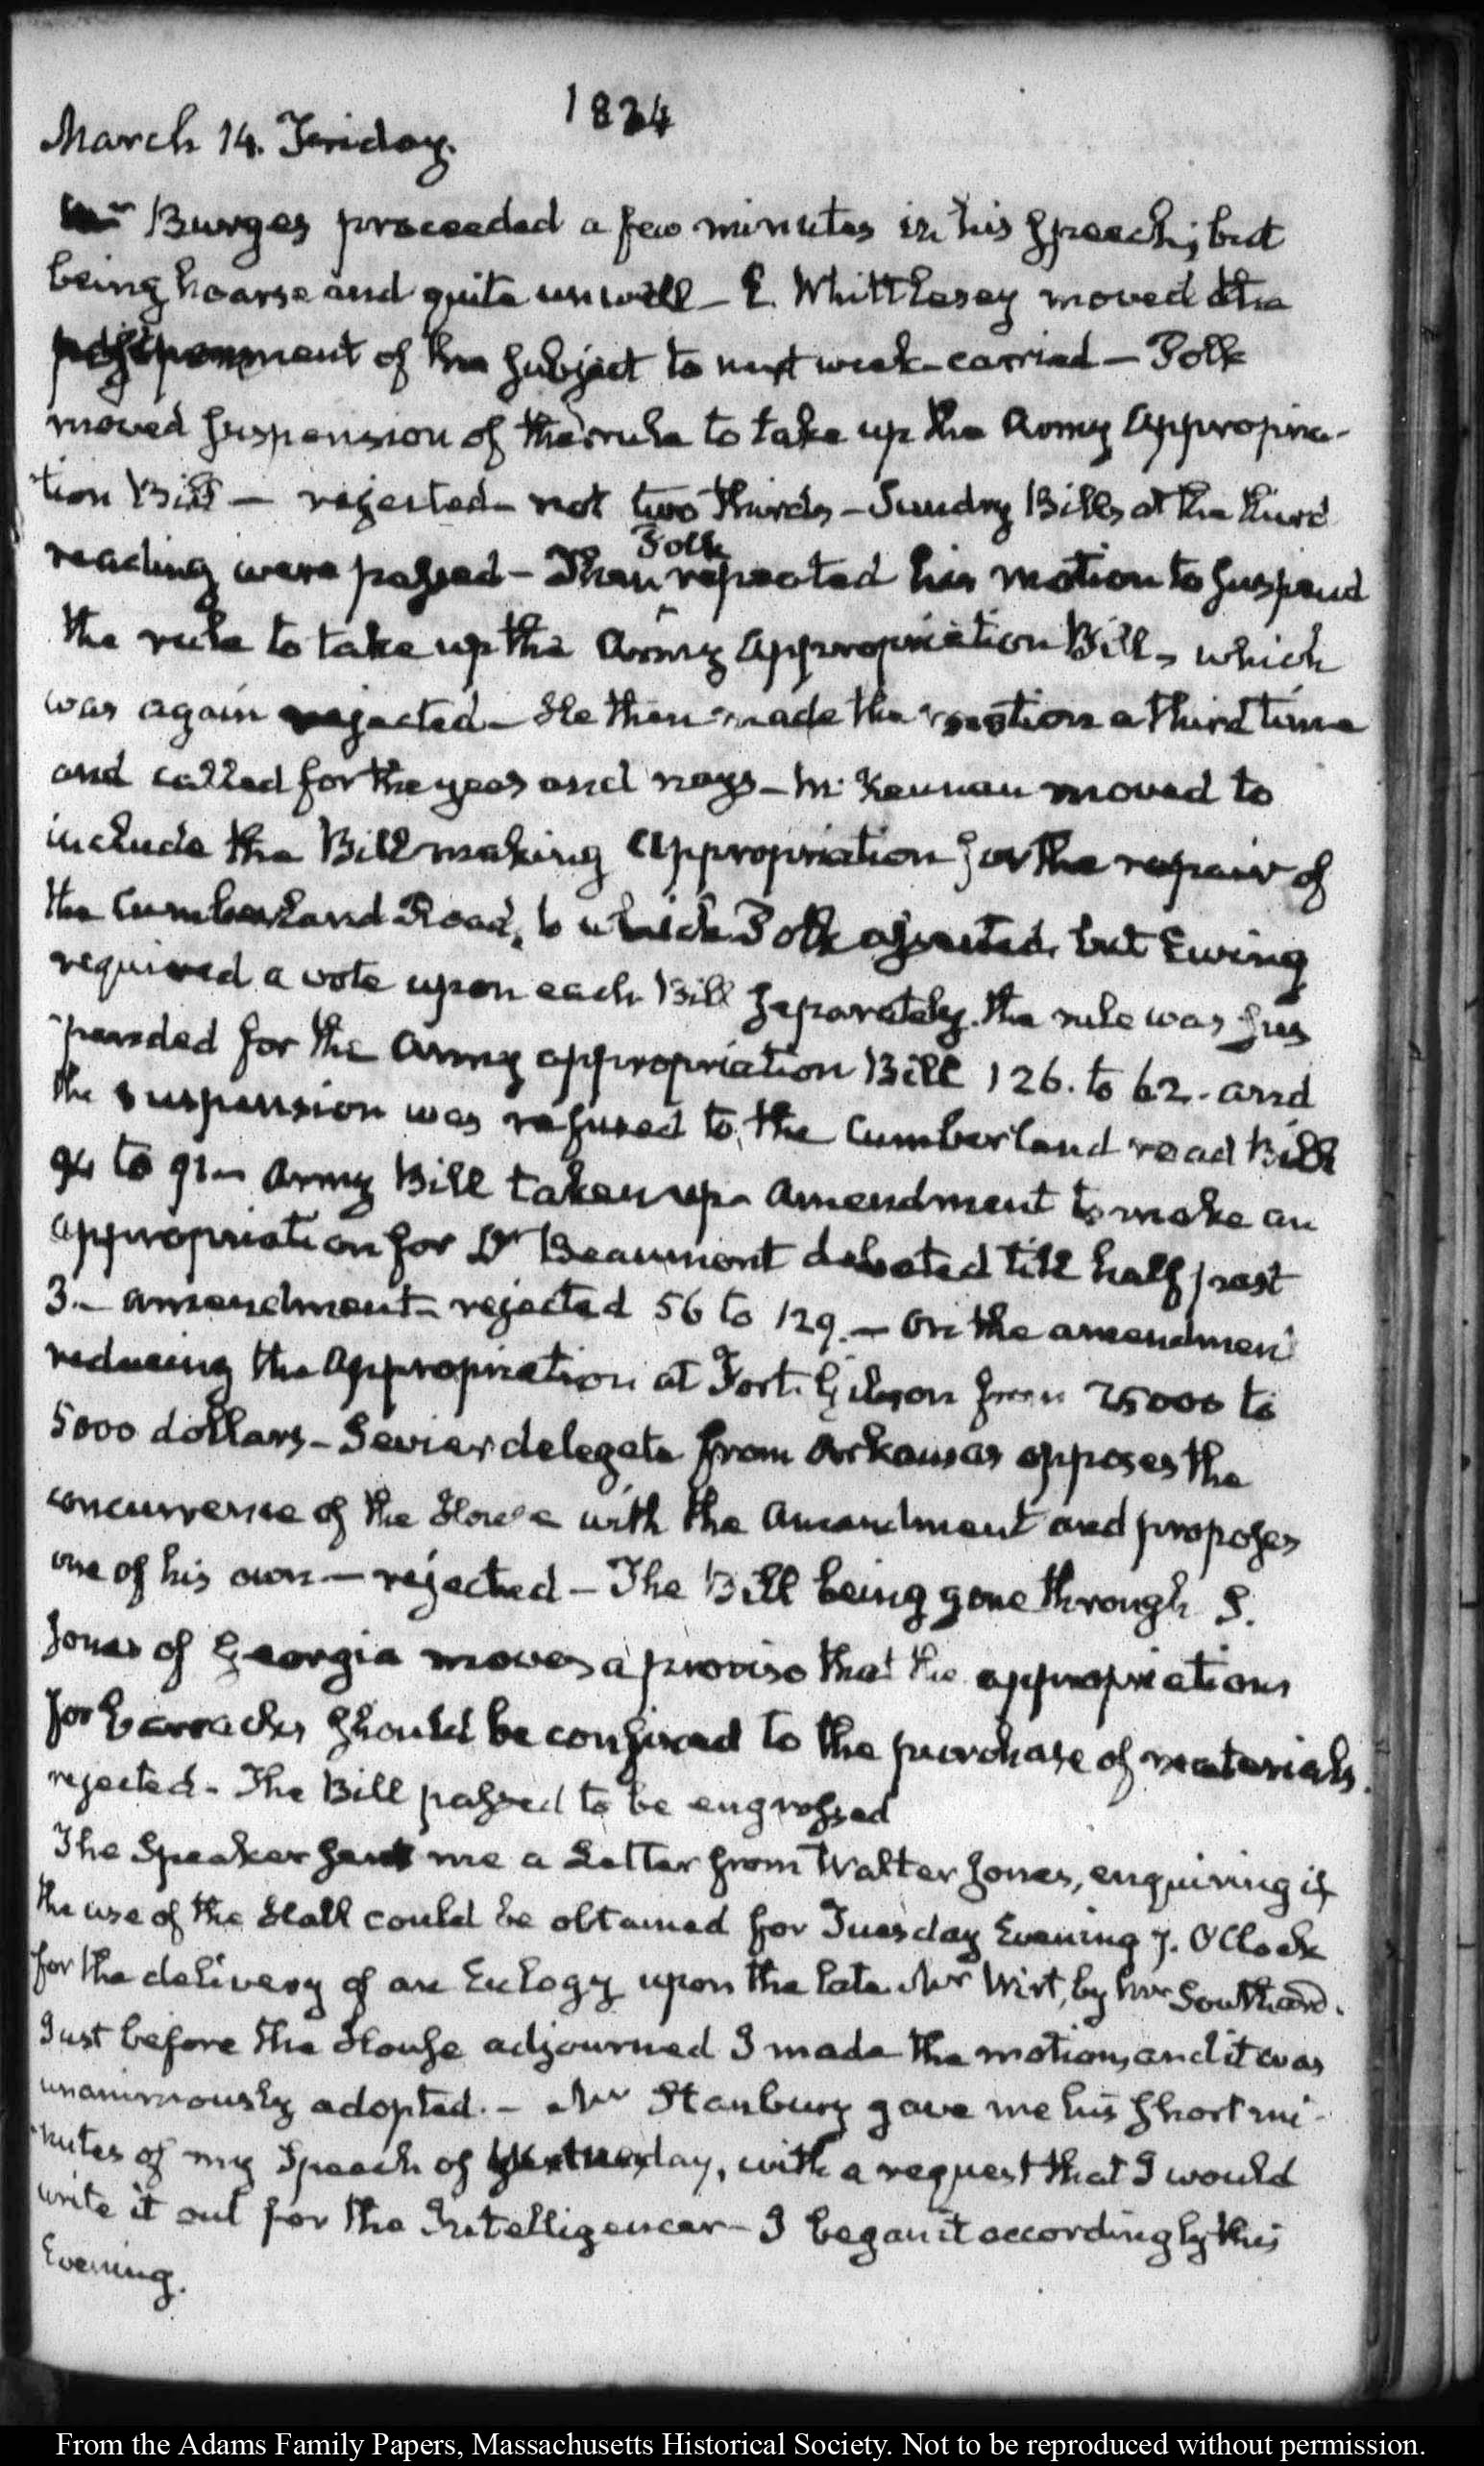 1834
March 14. Friday.
Mr Burges proceeded a few minutes in his Speech; but
being hoarse and quite unwell – E. Whittlesey moved the
postponement of the subject to next week – carried – Polk
moved suspension of the rule to take up the Army Appropria-
tion Bill – rejected – not two thirds – Sundry Bills at the third
reading were passed – Then Polk repeated his motion to suspend
the rule to take up the Army Appropriation Bill – which
was again rejected – He then made the motion a third time
and called for the yeas and nays – McKennan moved to
include the Bill making Appropriation for the repair of
the Cumberland Road, to which Polk assented, but Ewing
required a vote upon each Bill separately. the rule was sus
pended for the Army appropriation Bill 126. to 62. and
the suspension was refused to the Cumberland road Bill
94 to 91 – Army Bill taken up – Amendment to make an
appropriation for Dr Beaumont debated till half past
3. – amendment rejected 56 to 129. – On the amendment
reducing the Appropriation at Fort Gibson from 25000 to
5000 dollars – Sevier delegate from Arkansas opposes the
concurrence of the House with the Amendment and proposes
one of his own – rejected – The Bill being gone through S.
Jones of Georgia moves a proviso that the appropriations
for barracks should be confined to the purchase of materials.
rejected – The Bill passed to be engrossed
The Speaker sent me a Letter from Walter Jones, enquiring if
the use of the Hall could be obtained for Tuesday Evening 7. O'Clock
for the delivery of an Eulogy upon the late Mr Wirt, by Mr Southard.
Just before the House adjourned I made the motion, and it was
unanimously adopted. – Mr Stanbury gave me his short mi-
nutes of my Speech of yesterday, with a request that I would
write it out for the Intelligencer – I began it accordingly this
Evening.
From the Adams Family Papers, Massachusetts Historical Society. Not to be reproduced without permission.